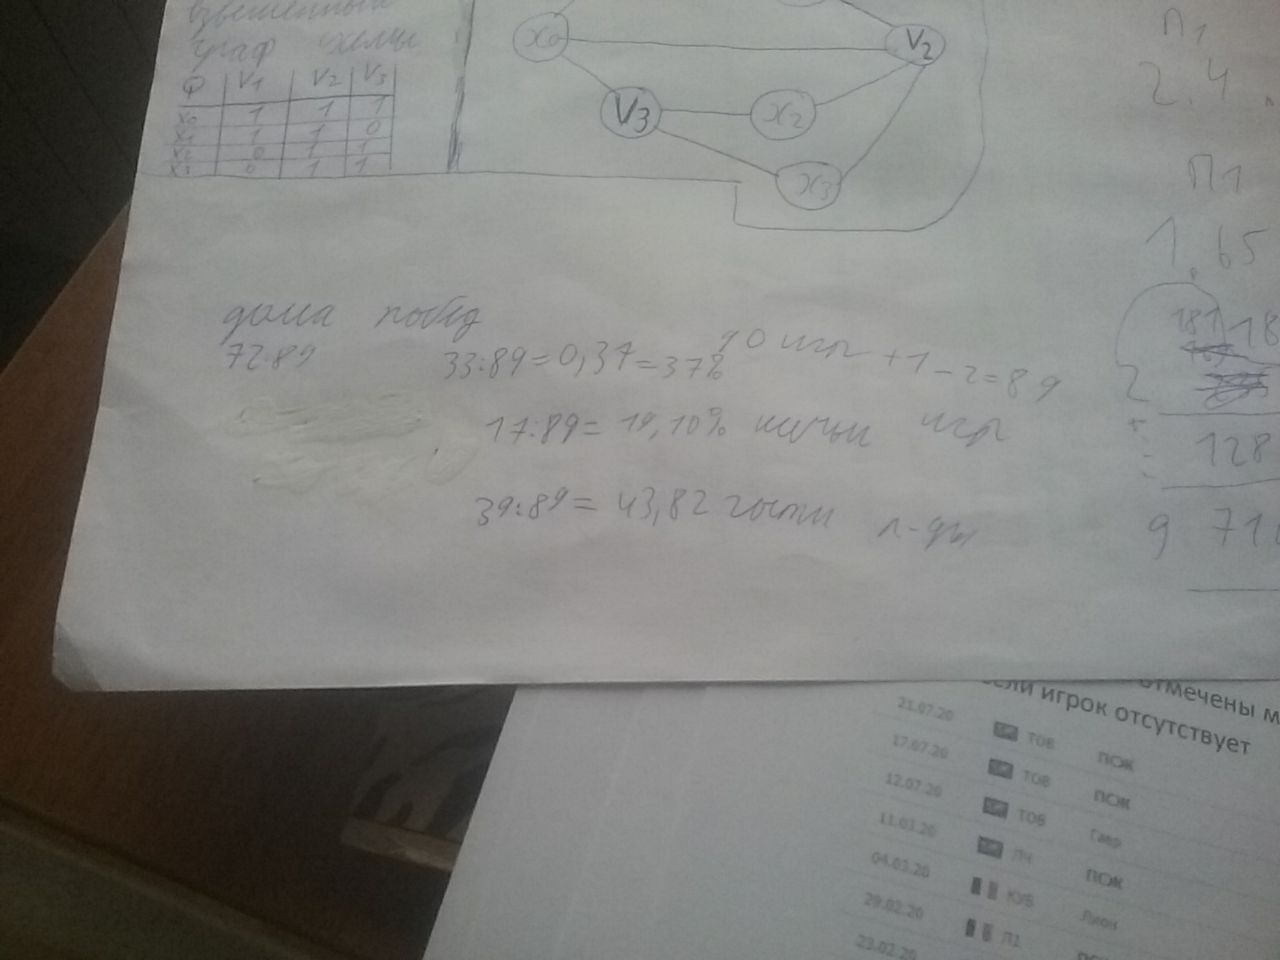 взвешенный
граф схемы
Ф V1 V2 V3
x0 1 1 1
x1 1 1 0
x2 0 1 1
x3 0 1 1
x0
V2
V3
x2
x3
П1
2.4
П1
1,65
181 18
2
128
9 71
дома побед
72:89
33:89=0,37=37%
90 игр +1-2=89
17:89=19,10% ничьи игр
39:89=43,82 гости п-ды
отмечены м
если игрок отсутствует
21.07.20 ТОВ ПСЖ
17.07.20 ТОВ ПСЖ
12.07.20 ТОВ Гавр
11.03.20 ЛЧ ПСЖ
04.03.20 КУБ Лион
29.02.20 Л1
23.02.20